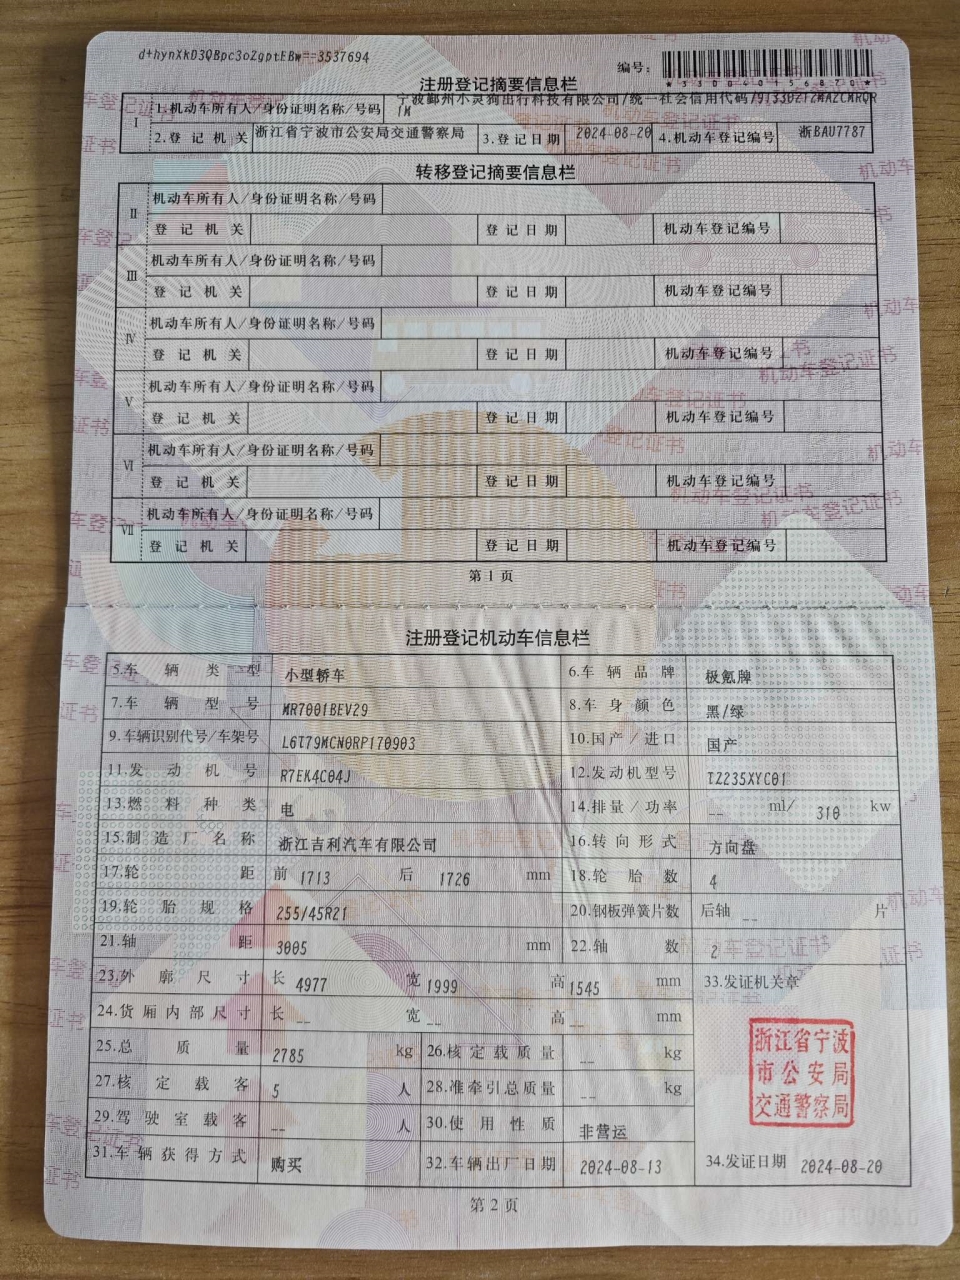 d+hynXkD3QBpc3oZgptEBw==3537694
编号：
*330040156870*
注册登记摘要信息栏
I 1.机动车所有人/身份证明名称/号码 宁波鄞州小灵狗出行科技有限公司/统一社会信用代码/
2.登记机关 浙江省宁波市公安局交通警察局 3.登记日期 2024-08-20 4.机动车登记编号 浙BAU7787
转移登记摘要信息栏
II 机动车所有人/身份证明名称/号码
登记机关 登记日期 机动车登记编号
III 机动车所有人/身份证明名称/号码
登记机关 登记日期 机动车登记编号
IV 机动车所有人/身份证明名称/号码
登记机关 登记日期 机动车登记编号
V 机动车所有人/身份证明名称/号码
登记机关 登记日期 机动车登记编号
VI 机动车所有人/身份证明名称/号码
登记机关 登记日期 机动车登记编号
VII 机动车所有人/身份证明名称/号码
登记机关 登记日期 机动车登记编号
第1页
注册登记机动车信息栏
5.车辆类型 小型轿车 6.车辆品牌 极氪牌
7.车辆型号 MR7001BEV29 8.车身颜色 黑/绿
9.车辆识别代号/车架号 L6T79MCN0RP170903 10.国产/进口 国产
11.发动机号 R7EK4C04J 12.发动机型号 TZ235XYC01
13.燃料种类 电 14.排量/功率 -- ml/ 310 kw
15.制造厂名称 浙江吉利汽车有限公司 16.转向形式 方向盘
17.轮距 前 1713 后 1726 mm 18.轮胎数 4
19.轮胎规格 255/45R21 20.钢板弹簧片数 后轴 -- 片
21.轴距 3005 mm 22.轴数 2
23.外廓尺寸 长 4977 宽 1999 高 1545 mm 33.发证机关章
24.货厢内部尺寸 长 -- 宽 -- 高 -- mm
25.总质量 2785 kg 26.核定载质量 -- kg
27.核定载客 5 人 28.准牵引总质量 -- kg
浙江省宁波
市公安局
交通警察局
29.驾驶室载客 -- 人 30.使用性质 非营运
31.车辆获得方式 购买 32.车辆出厂日期 2024-08-13 34.发证日期 2024-08-20
第2页